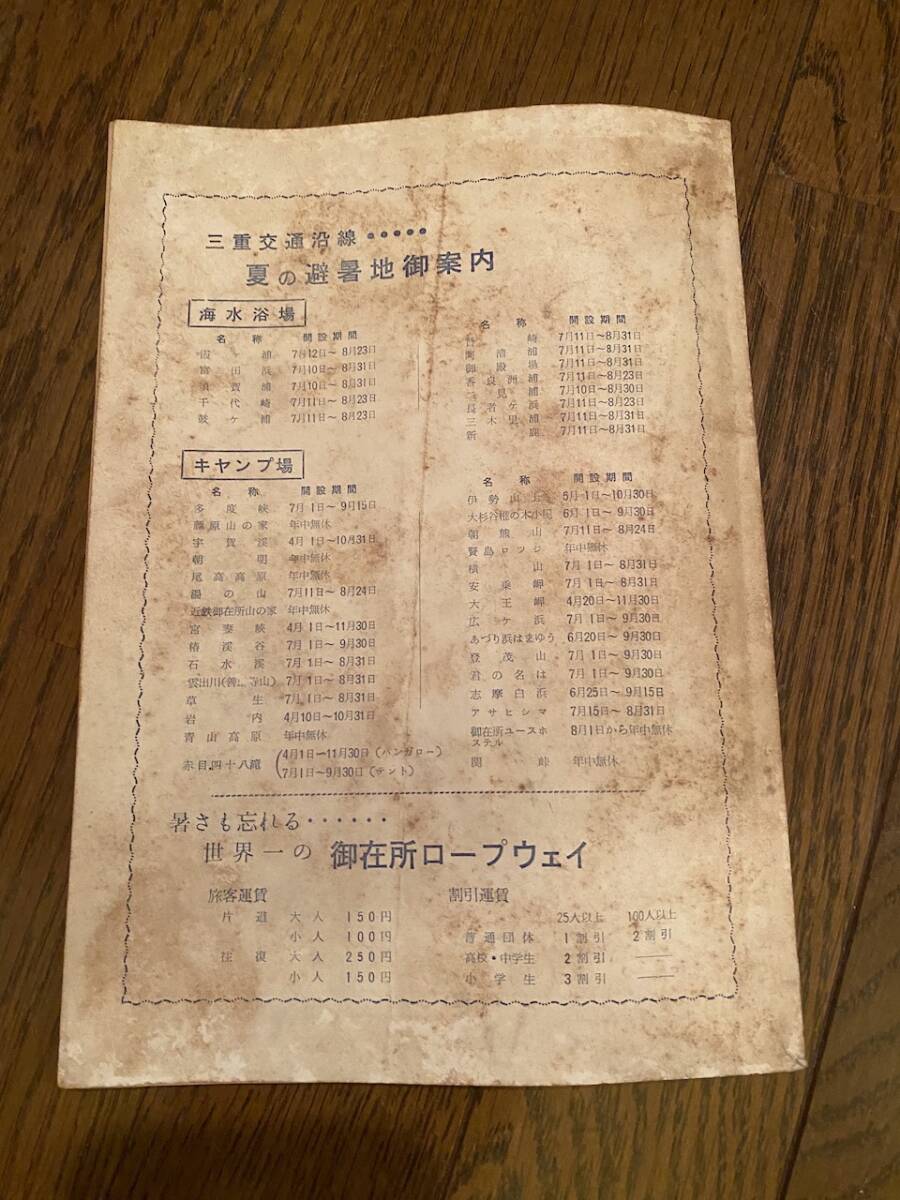 三重交通沿線・・・・・
夏の避暑地御案内
海水浴場
名称 開設期間
霞浦 7月12日〜8月23日
富田浜 7月10日〜8月31日
須賀浦 7月10日〜8月31日
千代崎 7月11日〜8月23日
鼓ヶ浦 7月11日〜8月23日
名称 開設期間
崎 7月11日〜8月31日
阿漕浦 7月11日〜8月31日
御殿場 7月11日〜8月31日
香良洲浦 7月11日〜8月23日
二見浦 7月10日〜8月30日
長者ヶ浜 7月11日〜8月23日
三木里浦 7月11日〜8月31日
新鹿 7月11日〜8月31日
キヤンプ場
名称 開設期間
多度峡 7月1日〜9月15日
藤原山の家 年中無休
宇賀渓 4月1日〜10月31日
朝明 年中無休
尾高高原 年中無休
湯の山 7月11日〜8月24日
近鉄御在所山の家 年中無休
宮妻峡 4月1日〜11月30日
椿渓谷 7月1日〜9月30日
石水渓 7月1日〜8月31日
雲出川(善 寺山) 7月1日〜8月31日
草生 7月1日〜8月31日
岩内 4月10日〜10月31日
青山高原 年中無休
赤目四十八滝 (4月1日〜11月30日(バンガロー)
(7月1日〜9月30日(テント)
名称 開設期間
伊勢山上 5月1日〜10月30日
大杉谷檜の木小屋 6月1日〜9月30日
朝熊山 7月11日〜8月24日
賢島ロッジ 年中無休
横山 7月1日〜8月31日
安乗岬 7月1日〜8月31日
大王岬 4月20日〜11月30日
広ヶ浜 7月1日〜9月30日
あづり浜はまゆう 6月20日〜9月30日
登茂山 7月1日〜9月30日
君の名は 7月1日〜9月30日
志摩白浜 6月25日〜9月15日
アサヒシマ 7月15日〜8月31日
御在所ユースホ 8月1日から年中無休
ステル
関峠 年中無休
暑さも忘れる・・・・・・
世界一の 御在所ロープウェイ
旅客運賃
片道 大人 150円
小人 100円
往復 大人 250円
小人 150円
割引運賃
25人以上 100人以上
普通団体 1割引 2割引
高校・中学生 2割引 ——
小学生 3割引 ——